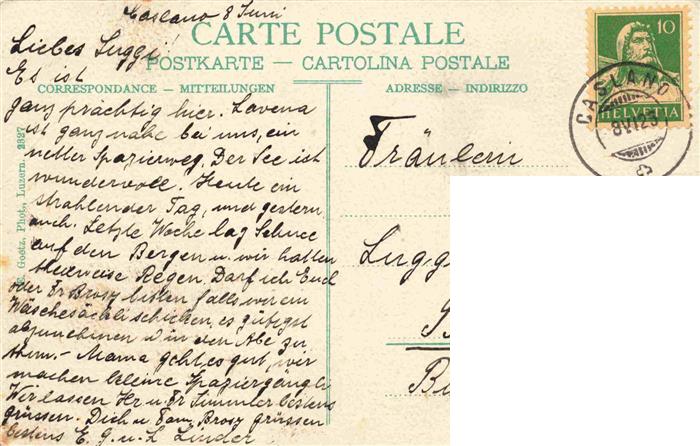 Caslano 8 Juni
Liebes Luggi!
Es ist
ganz prächtig hier. Lavena
ist ganz nahe bei uns, ein
netter Spazierweg. Der See ist
wundervoll. Heute ein
strahlender Tag, und gestern
auch. Letzte Woche lag Schnee
auf den Bergen u. wir hatten
teilweise Regen. Darf ich Euch
oder Fr Brosy bitten falls wir ein
Wäschesäckli schicken, es gütigst
abzunehmen u in den
tun. - Mama geht es gut, wir
machen kleine Spaziergängli
Wir lassen Hr. u. Fr Simmler bestens
grüssen. Dich u. Fam. Brosy grüssen
bestens E. G. u. L Linder
CARTE POSTALE
POSTKARTE — CARTOLINA POSTALE
CORRESPONDANCE — MITTEILUNGEN
ADRESSE — INDIRIZZO
Goetz, Phot., Luzern. 2327
10
HELVETIA
CASLANO
8.VI.25
Fräulein
Lugg